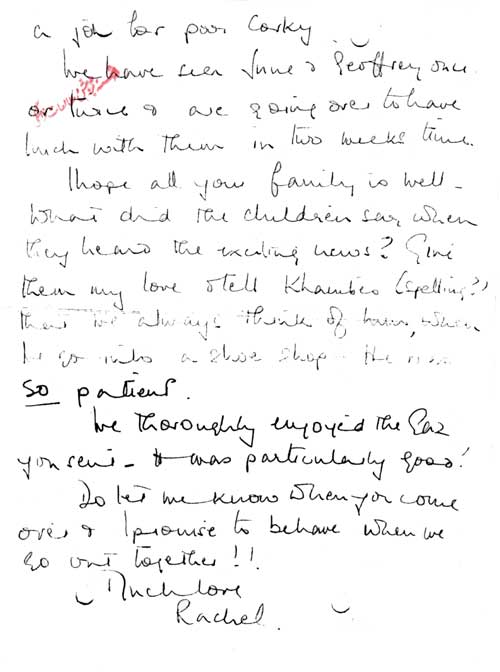 a job for poor Corky
We have seen June & Geoffrey once
or twice & are going over to have
lunch with them in two weeks time.
I hope all your family is well -
What did the children say when
they heard the exciting news? Give
them my love & tell Khambiz (spelling?)
that we always think of him, when
we go into a shoe shop - He was
so patient.
We thoroughly enjoyed the Gaz
you sent - It was particularly good!
Do let me know when you come
over & I promise to behave when we
go out together!!
Much love
Rachel.